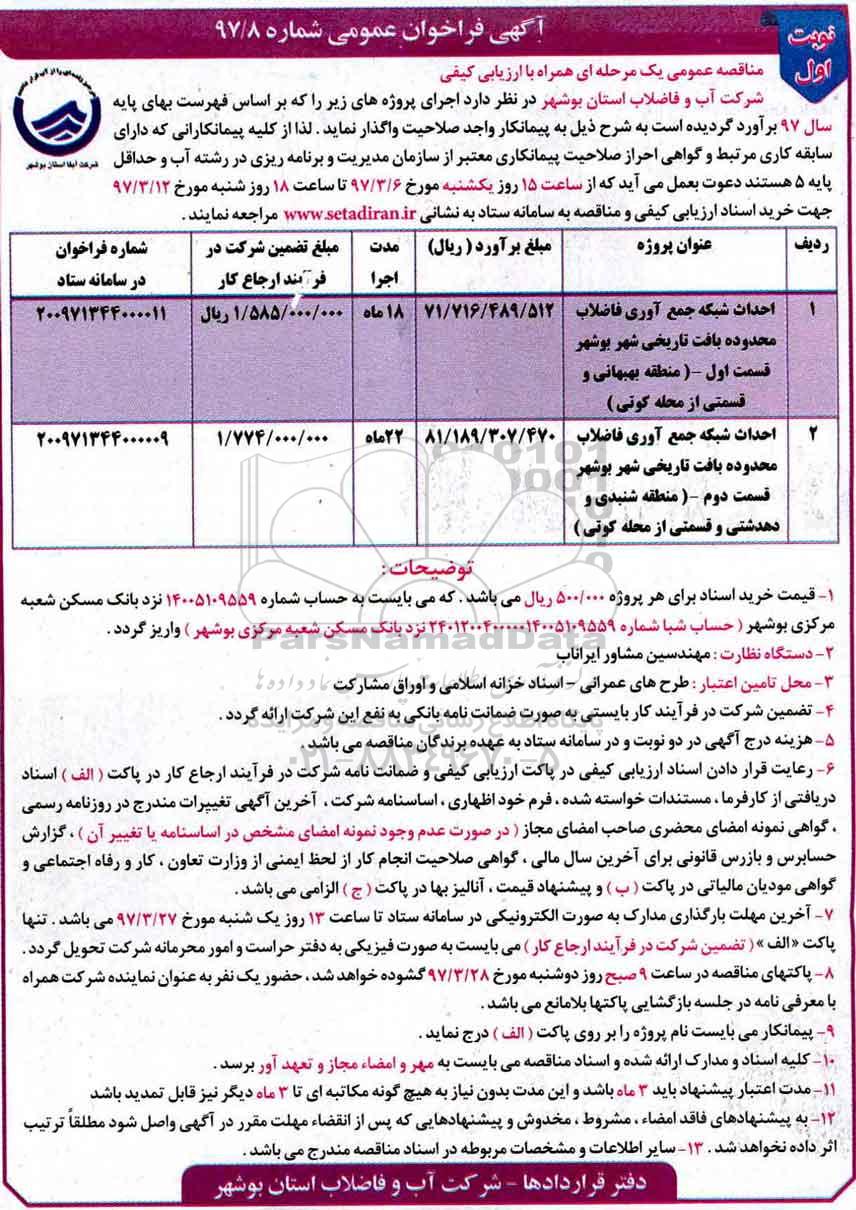 آگهی فراخوان عمومی شماره ۹۷/۸
نوبت
اول
مناقصه عمومی یک مرحله ای همراه با ارزیابی کیفی
شرکت آب و فاضلاب استان بوشهر در نظر دارد اجرای پروژه های زیر را که بر اساس فهرست بهای پایه
سال ۹۷ برآورد گردیده است به شرح ذیل به پیمانکار واجد صلاحیت واگذار نماید . لذا از کلیه پیمانکارانی که دارای
سابقه کاری مرتبط و گواهی احراز صلاحیت پیمانکاری معتبر از سازمان مدیریت و برنامه ریزی در رشته آب و حداقل
پایه ۵ هستند دعوت بعمل می آید که از ساعت ۱۵ روز یکشنبه مورخ ۹۷/۳/۶ تا ساعت ۱۸ روز شنبه مورخ ۹۷/۳/۱۲
جهت خرید اسناد ارزیابی کیفی و مناقصه به سامانه ستاد به نشانی www.setadiran.ir مراجعه نمایند .
شرکت آبفا استان بوشهر
ردیف عنوان پروژه مبلغ برآورد ( ریال) مدت اجرا مبلغ تضمین شرکت در فرآیند ارجاع کار شماره فراخوان در سامانه ستاد
۱ احداث شبکه جمع آوری فاضلاب ۷۱/۷۱۶/۴۸۹/۵۱۲ ۱۸ ماه ۱/۵۸۵/۰۰۰/۰۰۰ ریال ۲۰۰۹۷۱۳۴۴۰۰۰۰۱۱
محدوده بافت تاریخی شهر بوشهر
قسمت اول –( منطقه بهبهانی و
قسمتی از محله کوتی )
۲ احداث شبکه جمع آوری فاضلاب ۸۱/۱۸۹/۳۰۷/۴۷۰ ۲۲ماه ۱/۷۷۴/۰۰۰/۰۰۰ ۲۰۰۹۷۱۳۴۴۰۰۰۰۰۹
محدوده بافت تاریخی شهر بوشهر
قسمت دوم –( منطقه شنبدی و
دهدشتی و قسمتی از محله کوتی )
توضیحات:
۱– قیمت خرید اسناد برای هر پروژه ۵۰۰/۰۰۰ ریال می باشد . که می بایست به حساب شماره ۱۴۰۰۵۱۰۹۵۵۹ نزد بانک مسکن شعبه
مرکزی بوشهر ( حساب شبا شماره ۲۴۰۱۲۰۰۴۰۰۰۰۰۱۴۰۰۵۱۰۹۵۵۹ نزد بانک مسکن شعبه مرکزی بوشهر ) واریز گردد .
۲– دستگاه نظارت : مهندسین مشاور ایراناب
۳– محل تامین اعتبار : طرح های عمرانی – اسناد خزانه اسلامی و اوراق مشارکت
۴– تضمین شرکت در فرآیند کار بایستی به صورت ضمانت نامه بانکی به نفع این شرکت ارائه گردد .
۵– هزینه درج آگهی در دو نوبت و در سامانه ستاد به عهده برندگان مناقصه می باشد .
۶– رعایت قرار دادن اسناد ارزیابی کیفی در پاکت ارزیابی کیفی و ضمانت نامه شرکت در فرآیند ارجاع کار در پاکت ( الف ) اسناد
دریافتی از کارفرما ، مستندات خواسته شده ، فرم خود اظهاری ، اساسنامه شرکت ، آخرین آگهی تغییرات مندرج در روزنامه رسمی
، گواهی نمونه امضای محضری صاحب امضای مجاز ( در صورت عدم وجود نمونه امضای مشخص در اساسنامه یا تغییر آن ) ، گزارش
حسابرس و بازرس قانونی برای آخرین سال مالی ، گواهی صلاحیت انجام کار از لحظ ایمنی از وزارت تعاون ، کار و رفاه اجتماعی و
گواهی مودیان مالیاتی در پاکت ( ب ) و پیشنهاد قیمت ، آنالیز بها در پاکت ( ج ) الزامی می باشد .
۷– آخرین مهلت بارگذاری مدارک به صورت الکترونیکی در سامانه ستاد تا ساعت ۱۳ روز یک شنبه مورخ ۹۷/۳/۲۷ می باشد . تنها
پاکت «الف» ( تضمین شرکت در فرآیند ارجاع کار ) می بایست به صورت فیزیکی به دفتر حراست و امور محرمانه شرکت تحویل گردد .
۸– پاکتهای مناقصه در ساعت ۹ صبح روز دوشنبه مورخ ۹۷/۳/۲۸ گشوده خواهد شد ، حضور یک نفر به عنوان نماینده شرکت همراه
با معرفی نامه در جلسه بازگشایی پاکتها بلامانع می باشد .
۹– پیمانکار می بایست نام پروژه را بر روی پاکت ( الف ) درج نماید .
۱۰– کلیه اسناد و مدارک ارائه شده و اسناد مناقصه می بایست به مهر و امضاء مجاز و تعهد آور برسد .
۱۱– مدت اعتبار پیشنهاد باید ۳ ماه باشد و این مدت بدون نیاز به هیچ گونه مکاتبه ای تا ۳ ماه دیگر نیز قابل تمدید باشد
۱۲– به پیشنهادهای فاقد امضاء ، مشروط ، مخدوش و پیشنهادهایی که پس از انقضاء مهلت مقرر در آگهی واصل شود مطلقاً ترتیب
اثر داده نخواهد شد . ۱۳– سایر اطلاعات و مشخصات مربوطه در اسناد مناقصه مندرج می باشد .
دفتر قراردادها – شرکت آب و فاضلاب استان بوشهر
ParsNamadData
پایگاه اطلاع رسانی مناقصه و مزایده
۰۲۱-۸۸۳۴۹۶۷۰-۵